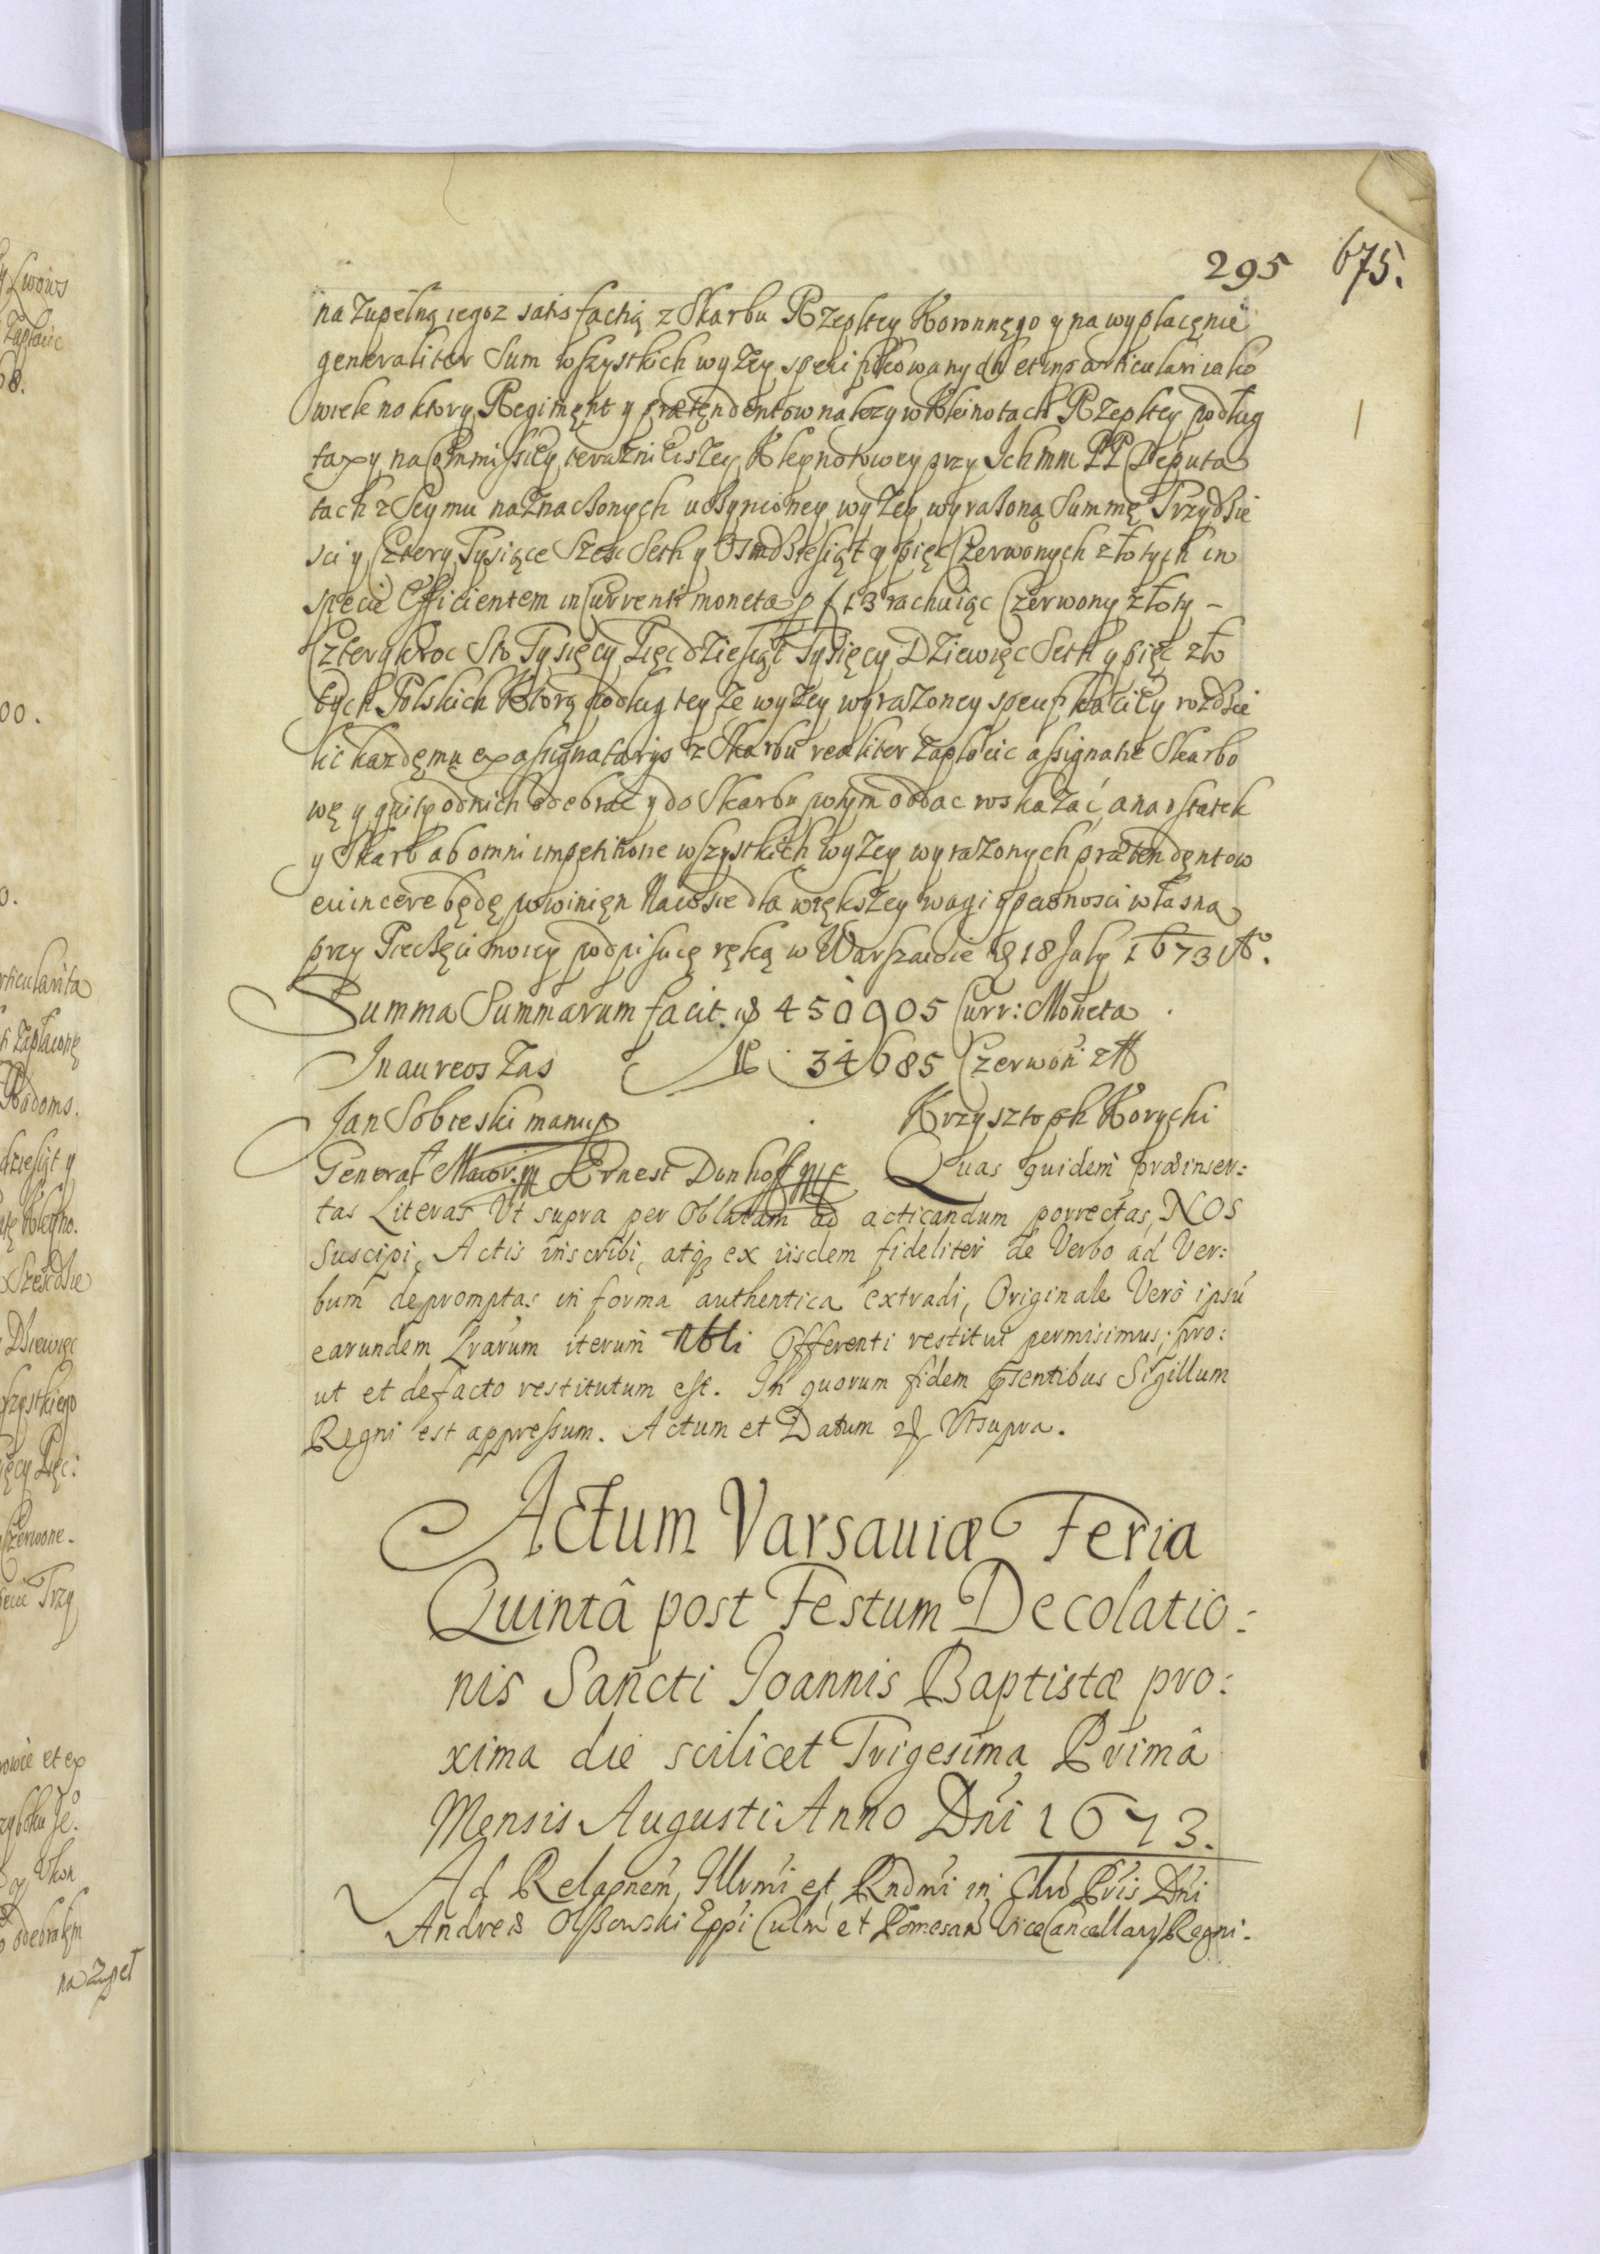 295 675.
na zupełną iegoz satisfactią z Skarbu RZeptey Koronnęgo y na wypłacęnie
generaliter Sum wszystkich wyZey specifikowanych et in particulari iako
wiele na ktory Regimęnt y prætęndentow należy w Kleinotach RZeptey podług
taxy na Commissiey teraznieiszey Kleynotowey przy Ichmm PP Deputa
tach z Seymu naznaczonych uczynioney wyZey wyrażoną Summę Trzydzie
sci y Cztery Tysiące Szesc Seth y Osmdziesiąt y pięc Czerwonych złotych in
specie Efficientem in Currenti moneta p f 13 rachuiąc Czerwony złoty –
Cztery kroc Sto Tysięcy Pięcdziesiąt Tysięcy Dziewięc Seth y pięc zło
tych Polskich Ktorą podług teyże wyZey wyrażoney specificatiey rozdzie
lic każdęmu ex assignatarys z Skarbu realiter zapłacic assignatie Skarbo
wę y quity od nich odebrac y do Skarbu potym oddac roskazać, a na ostatek
y Skarb ab omni impetitione wszystkich wyZey wyrażonych prætendęntow
euincere będę powinięn Na co sie dla większey wagi y pewnosci własną
przy Pieczęci moiey podpisuię ręką w Warszawie D 18 July 1673 Ao.
Summa Summarum facit. 450905 Curr: Moneta
In aureos zas 34685 Czerwon zł
Jan Sobieski manupp Krzysztoph Korycki
Generał Maior. Ernest Dunhoff mp Quas quidem præinser:
tas Literas Vt supra per Oblatam ad acticandum porrectas, NOS
suscipi, Actis inscribi, atq ex iisdem fideliter de Verbo ad Ver:
bum depromptas in forma authentica extradi, Originale Vero ipsū
earundem Lrarum iterum Nbli Offerenti restitui permisimus; pro:
ut et defacto restitutum est. In quorum fidem pńsentibus Sigillum
Regni est appressum. Actum et Datum Vtsupra.
Actum Varsauiæ Feria
Quintâ post Festum Decolatio:
nis Sancti Joannis Baptistæ pro:
xima die scilicet Trigesima Primâ
Mensis Augusti Anno Dni 1673.
Ad Relaonem Illrmi et Rndmi in Chro Pris Dni
Andreæ Olszowski Eppi Culm et Pomesan ViceCancellary Regni.